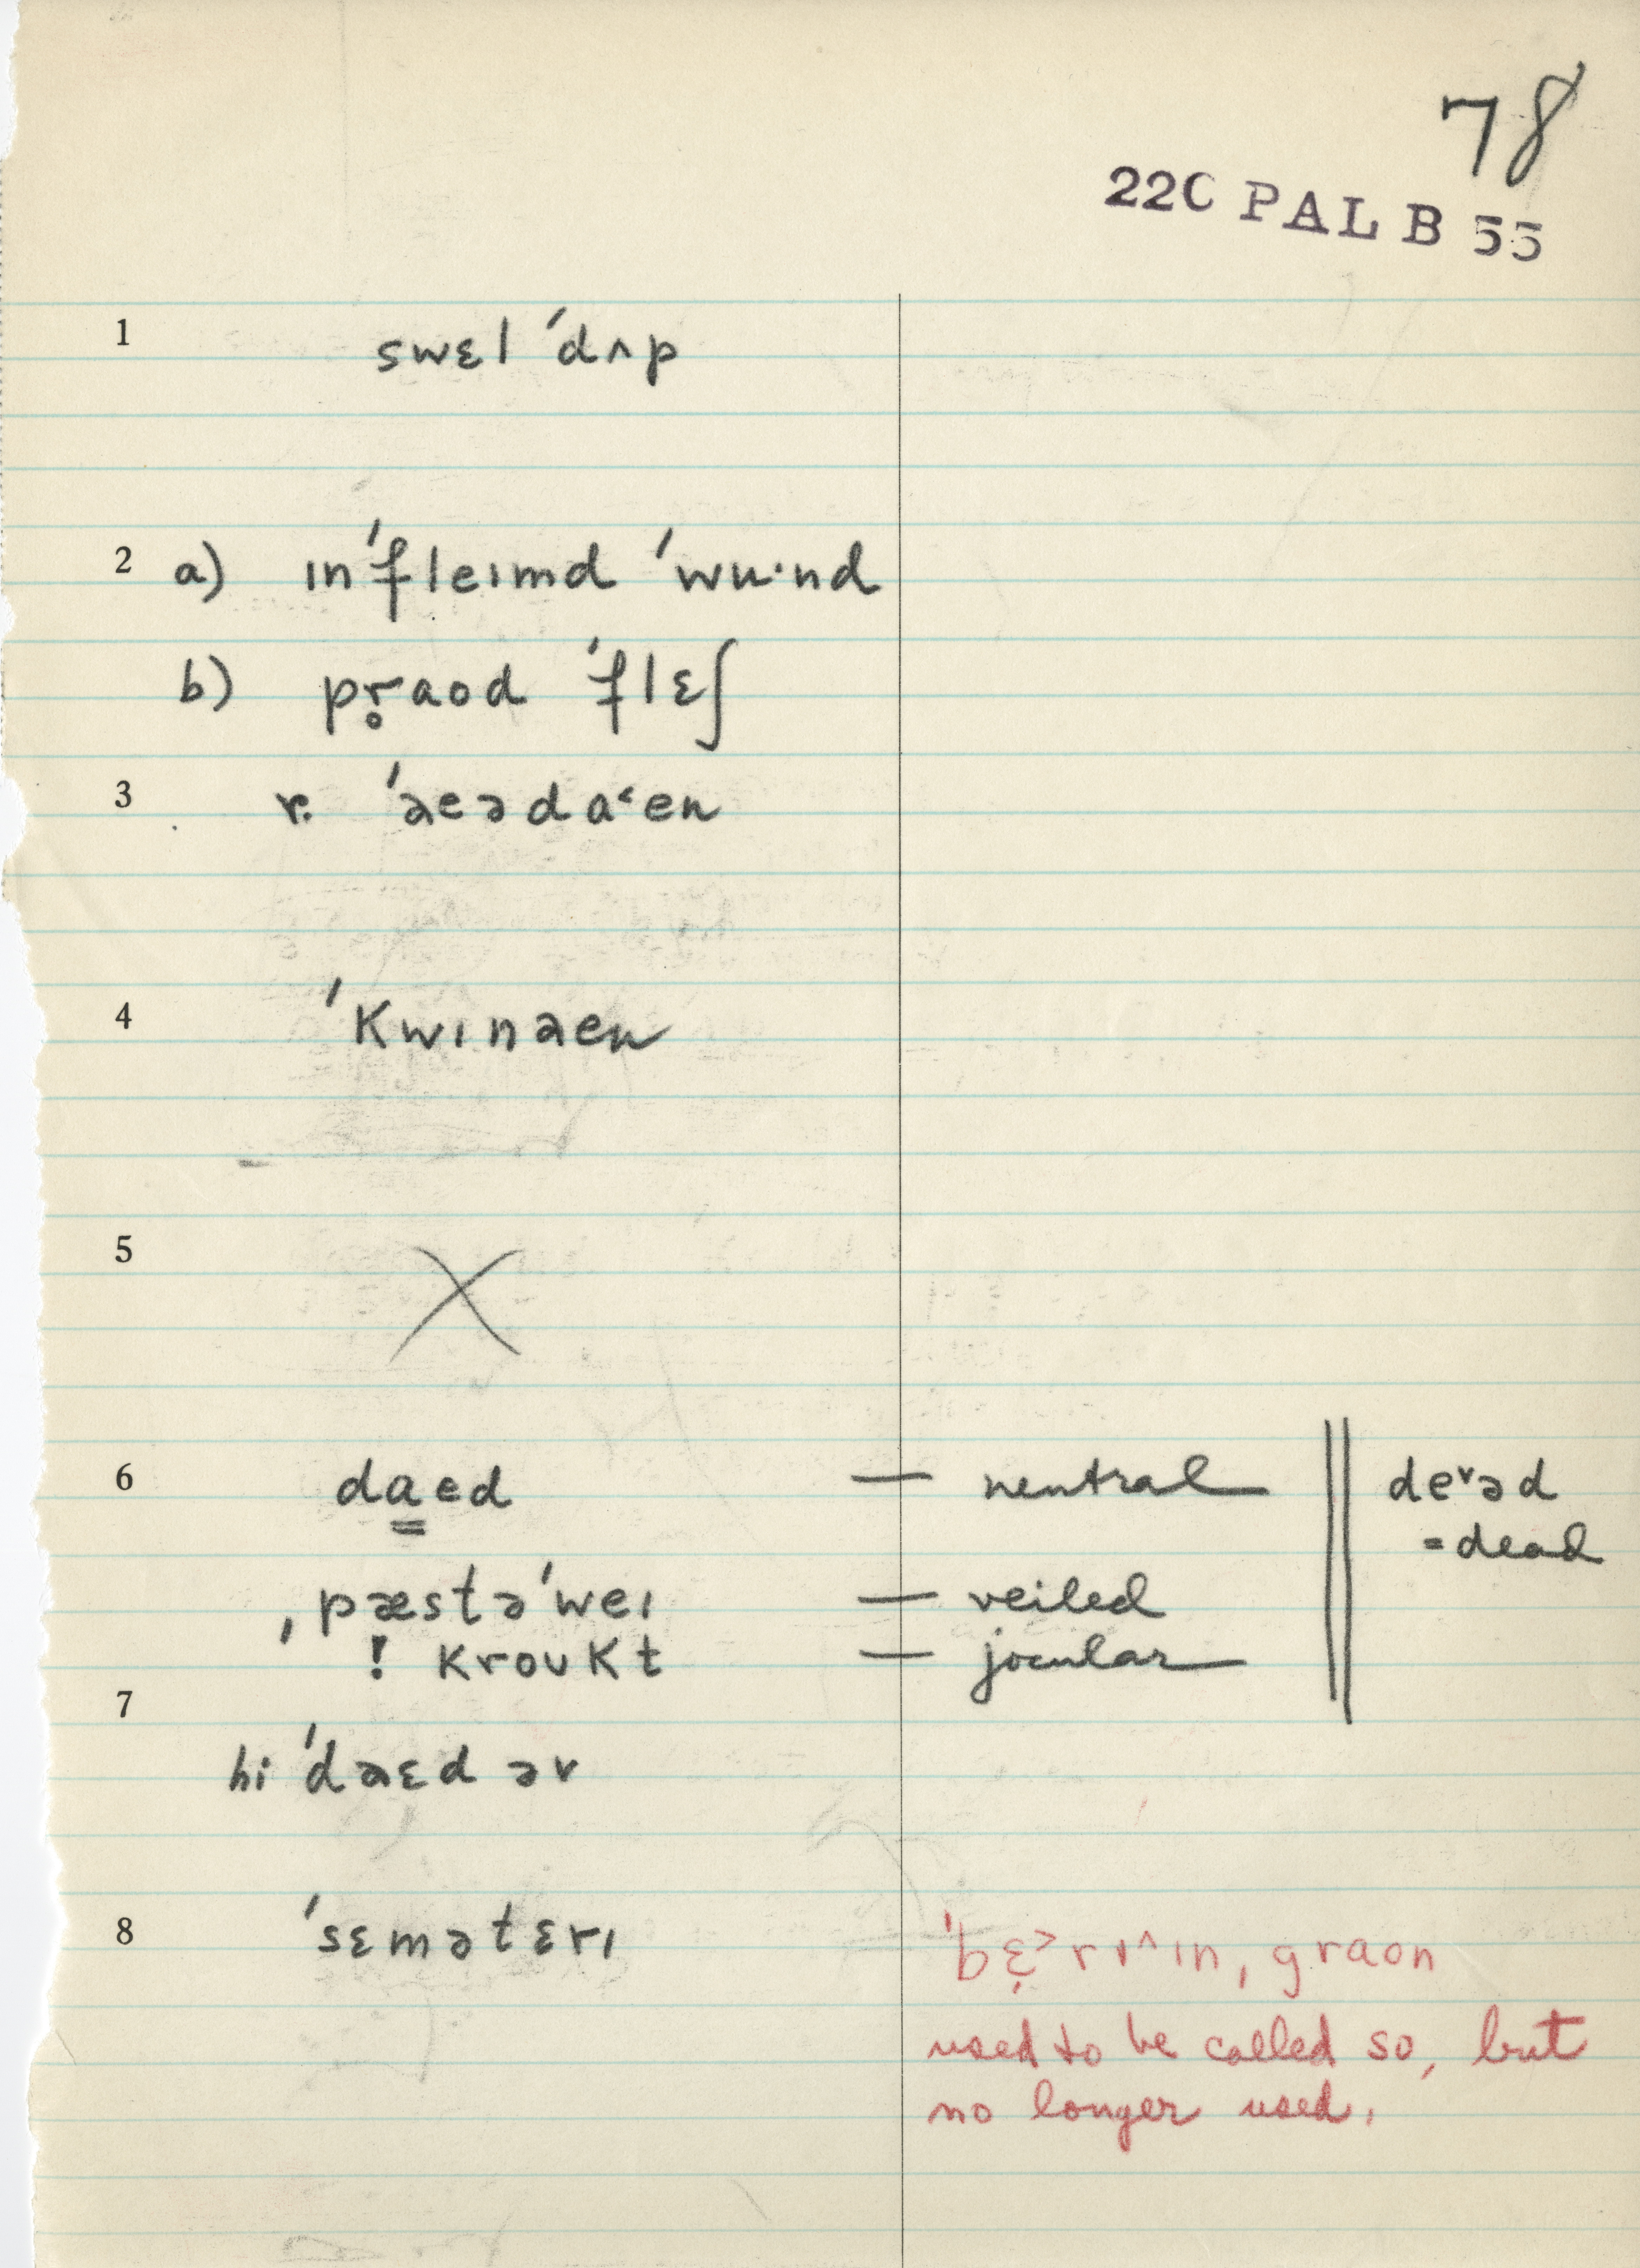 78
22C PAL B 55
1 swɛl ˈdʌp
2 a) ɪnˈfleɪmd ˈwʉ·nd
b) pr̥aod ˈflɛʃ
3 r. ˈaeəda˂en
4 ˈkwɪnaen
5 X
6 da̳ɛd — neutral deᵛəd
= dead
ˌpæstəˈweɪ — veiled
! kroʊkt — jocular
7
hi ˈdaɛd əv
8 ˈsɛmətɛrɪ ˈbɛ̣˃rɪ^ɪn, graon
used to be called so, but
no longer used.